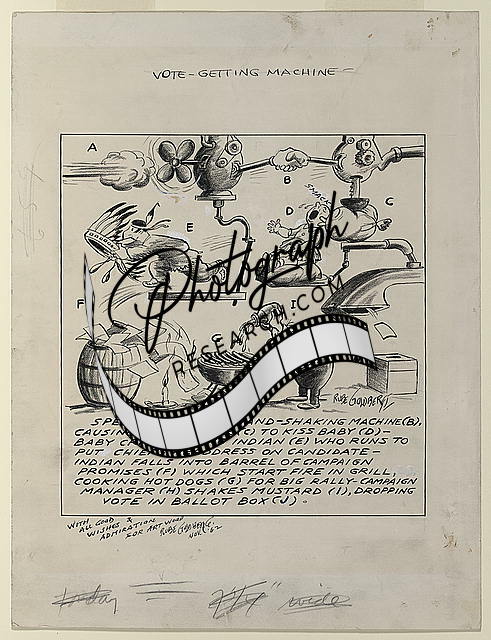 VOTE-GETTING MACHINE-
A
B
C
SMACK
D
E
F
I
Photograph
RESEARCH.COM
RUBE GOLDBERG
SPE AND-SHAKING MACHINE (B),
CAUSIN (C) TO KISS BABY (D)-
BABY C INDIAN (E) WHO RUNS TO
PUT CHIE DRESS ON CANDIDATE-
INDIAN FALLS INTO BARREL OF CAMPAIGN
PROMISES (F) WHICH START FIRE IN GRILL,
COOKING HOT DOGS (G) FOR BIG RALLY-CAMPAIGN
MANAGER (H) SHAKES MUSTARD (I), DROPPING
VOTE IN BALLOT BOX (J).
WITH
ALL GOOD
WISHES &
ADMIRATION
FOR ART WOOD
RUBE GOLDBERG
wide